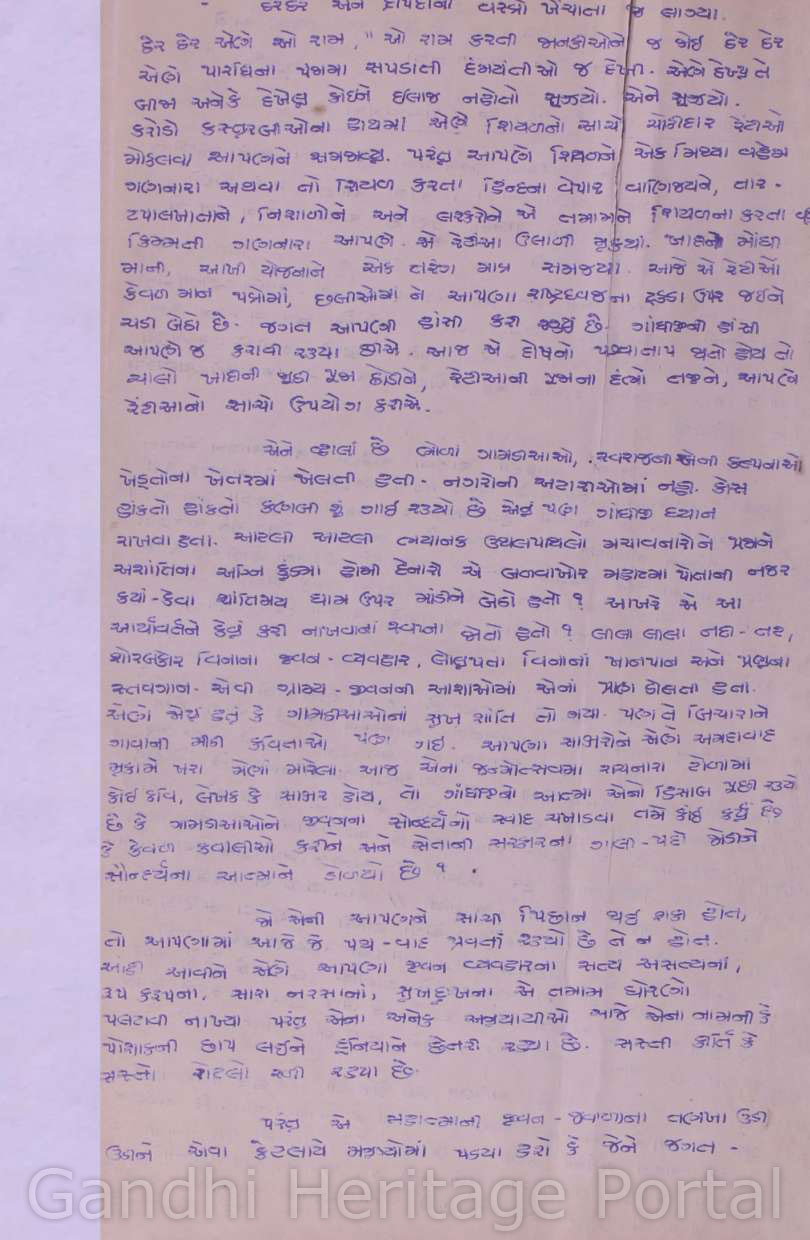 ઠેર ઠેર અને દ્રૌપદીનાં વસ્ત્રો ખેંચાતા જ લાગ્યા.
ઠેર ઠેર એણે ઓ રામ," ઓ રામ કરતી જાનકીઓને જ જોઈ ઠેર ઠેર
એણે પારધિના પંજામાં સપડાતી દમયંતીઓ જ દેખી. એણે દેખ્યુ તે
બીજા અનેકે દેખેલુ કોઇને ઇલાજ નહોતો સુઝયો. એને સુઝયો.
કરોડો કસ્તુરબાઓના હાથમાં એણે શિયળનો સાચો ચોકીદાર રેંટીઓ
મોકલવા આપણને સમજાવ્યુ. પરંતુ આપણે શિયળને એક મિથ્યા વહેમ
ગણનારા અથવા તો શિયળ કરતા હિન્દના વેપાર વાણિજયને, તાર-
ટપાલખાતાને, નિશાળોને અને લશ્કરોને એ તમામને શિયળના કરતા વધુ
કિમ્મતી ગણનારા આપણે. એ રેંટીઆ ઉલાળી મુકયાં. ખાદીને મોંઘી
માની, આખી યોજનાને એક તરંગ માત્ર સમજયા. આજે એ રેંટીઓ
કેવળ માન પત્રોમાં, છબીઓમાં ને આપણા રાષ્ટ્રધ્વજના ટુકડા ઉપર જઇને
ચડી બેઠો છે. જગત આપણી હાંસી કરી રહ્યું છે. ગાંધીજીની હાંસી
આપણે જ કરાવી રહ્યા છીએ. આજ એ દોષનો પશ્ચાતાપ થતો હોય તો
ચાલો ખાદીની જુઠી પૂજા છોડીને, રેંટીઆની પૂજાના દંભો તજીને, આપણે
રેંટીઆનો સાચો ઉપયોગ કરીએ.
એને વ્હાલાં છે ભોળાં ગામડીઆઓ, સ્વરાજની એની કલ્પનાઓ
ખેડૂતોના ખેતરમાં ખેલતી હતી - નગરોની અટારીઓમાં નહી. કોસ
હાંકતો હાંકતો કણબી શું ગાઇ રહ્યો છે એનું પણ ગાંધીજી ધ્યાન
રાખતા હતા. આટલી આટલી ભયાનક ઉથલપાથલો મચાવનારો ને પ્રજાને
અશાંતિના અગ્નિ કુંડમાં હોમી દેનારો એ બળવાખોર મહાત્મા પોતાની નજર
કયાં-કેવા શાંતિમય ધામ ઉપર માંડીને બેઠો હતો ? આખરે એ આ
આર્યાવર્તને કેવું કરી નાખવાનાં સ્વપ્ના જોતો હતો ? લીલા લીલા નદી-તટ,
શોરબકોર વિનાના જીવન-વ્યવહાર, લોલુપતા વિનાનાં ખાનપાન અને પ્રભુના
સ્તવગાન - એવી ગ્રામ્ય-જીવનની આશાઓમાં એનાં પ્રાણ ડોલતા હતા.
એણે જોયું હતું કે ગામડીઆઓનાં સુખ શાંતિ તો ગયા. પણ તે બિચારાને
ગાવાની મીઠી કવિતાઓ પણ ગઇ. આપણા સાક્ષરોને એણે અમદાવાદ
મુકામે ખરા મેણાં મારેલા. આજ એના જન્મોત્સવમાં રાચનારા ટોળામાં
કોઈ કવિ, લેખક કે સાક્ષર હોય, તો ગાંધીજીનો આત્મા એનો હિસાબ પૂછી રહ્યો
છે કે ગામડીઆઓને જીવનના સૌન્દર્યનો સ્વાદ ચખાડવા તમે કાંઇ કર્યું છે?
કે કેવળ કવાલીઓ કરીને અને સેતાની સરકારના ગાદી-પદો જોડીને
સૌન્દર્યના આત્માને રોળ્યો છે ?
જો એની આપણને સાચી પિછાન થઇ શકી હોત,
તો આપણામાં આજે જે પંથ-વાદ પ્રવર્તી રહ્યો છે તે ન હોત.
આંહી આવીને એણે આપણા જીવન વ્યવહારના સત્ય અસત્યનાં,
રૂપ કરૂપના, સારા નરસાનાં, સુખદુઃખના એ તમામ ધોરણો
પલટાવી નાખ્યા પરંતુ એના અનેક અનુયાયીઓ આજે એના નામની કે
પોશાકની છાપ લઇને દુનિયાને છેતરી રહ્યા છે. સસ્તી કીર્તિ કે
સસ્તો રોટલો રળી રહ્યા છે.
પરંતુ એ મહાત્માની જીવન-જવાળાના તણખા ઉડી
ઉડીને એવા કેટલાયે મનુષ્યોમાં પડયા હશે કે જેને જગત -
Gandhi Heritage Portal